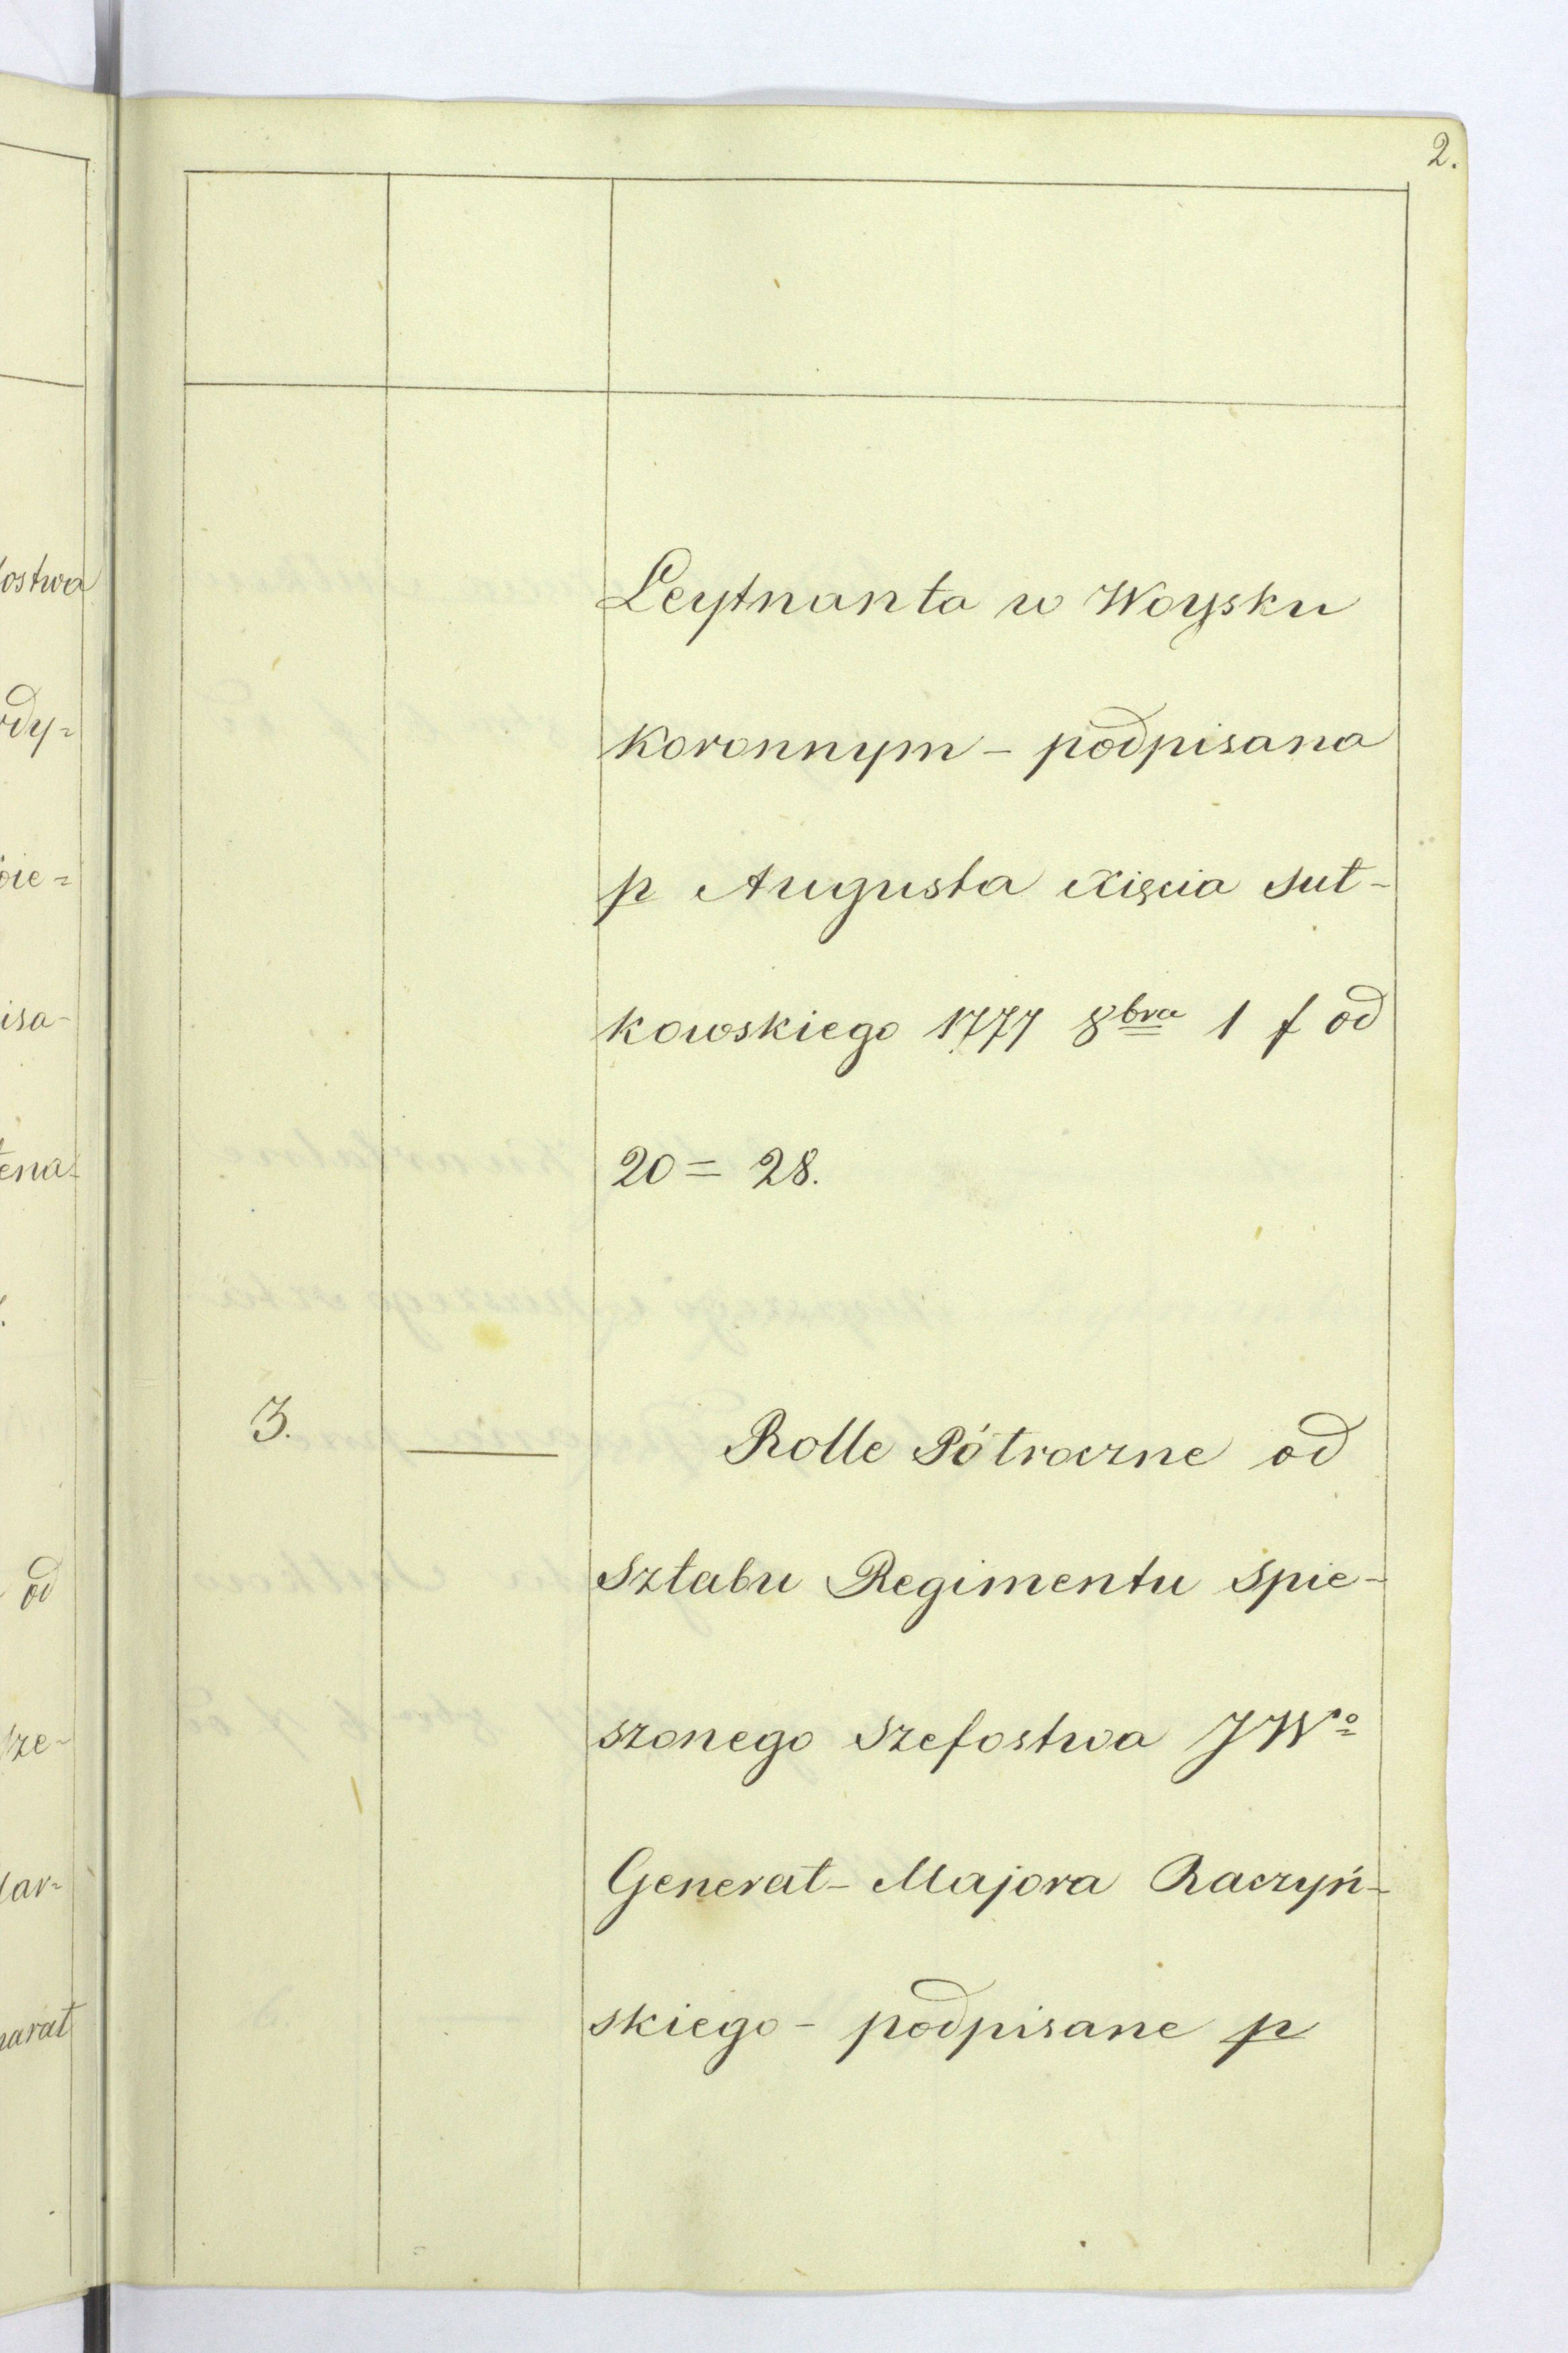 2.
Leytnanta w Woysku
Koronnym - podpisana
p Augusta Xięcia Suł-
kowskiego 1777 8bra 1 f od
20 = 28.
3. — Rolle Półroczne od
Sztabu Regimentu Spie-
szonego Szefostwa JWo
Generał-Majora Raczyń-
skiego - podpisane p